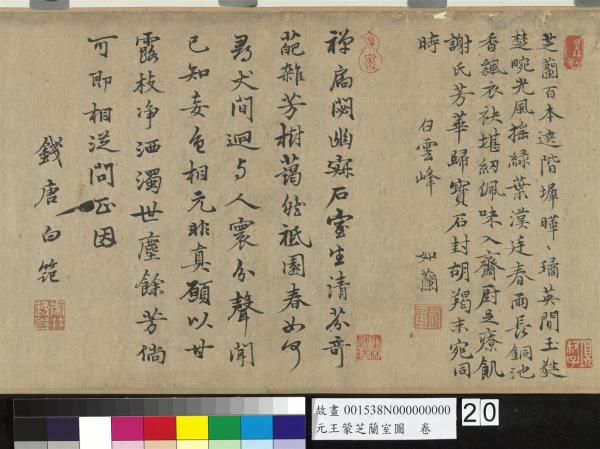 芝蘭百本遶階墀曄〻璚英間玉蕤
楚畹光風搖綠葉漢廷春雨長銅池
香飄衣袂堪紉佩味入齋厨足療飢
謝氏芳華歸寶石封胡羯末宛同
時
白雲峰 如蘭
禪扃閟幽寂石室生清芬奇
葩雜芳樹藹然祗園春如何
尋犬間迥与人寰分聲聞
已知妄色相元非真願以甘
露枝净洒濁世塵餘芳倘
可即相從問正因
錢唐白范
故畫 001538N000000000
元王蒙芝蘭室圖 卷
20